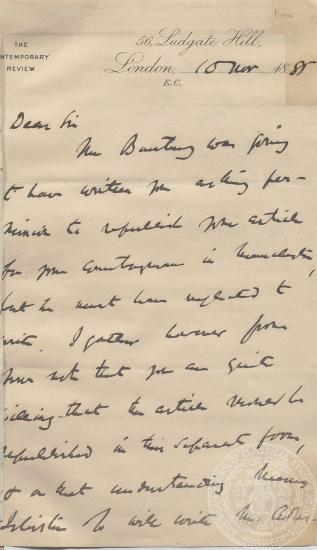 THE
NTEMPORARY
REVIEW
56, Ludgate Hill,
London, 10 Nov 188
E.C.
Dear Sir
Mr Bunting was going
t have written you asking per-
mission to republish your article
for your countrymen in Manchester,
but he must have neglected to
write. I gather however from
your note that you are quite
willing that the article should be
republished in this separate form,
& on that understanding
will write Mr